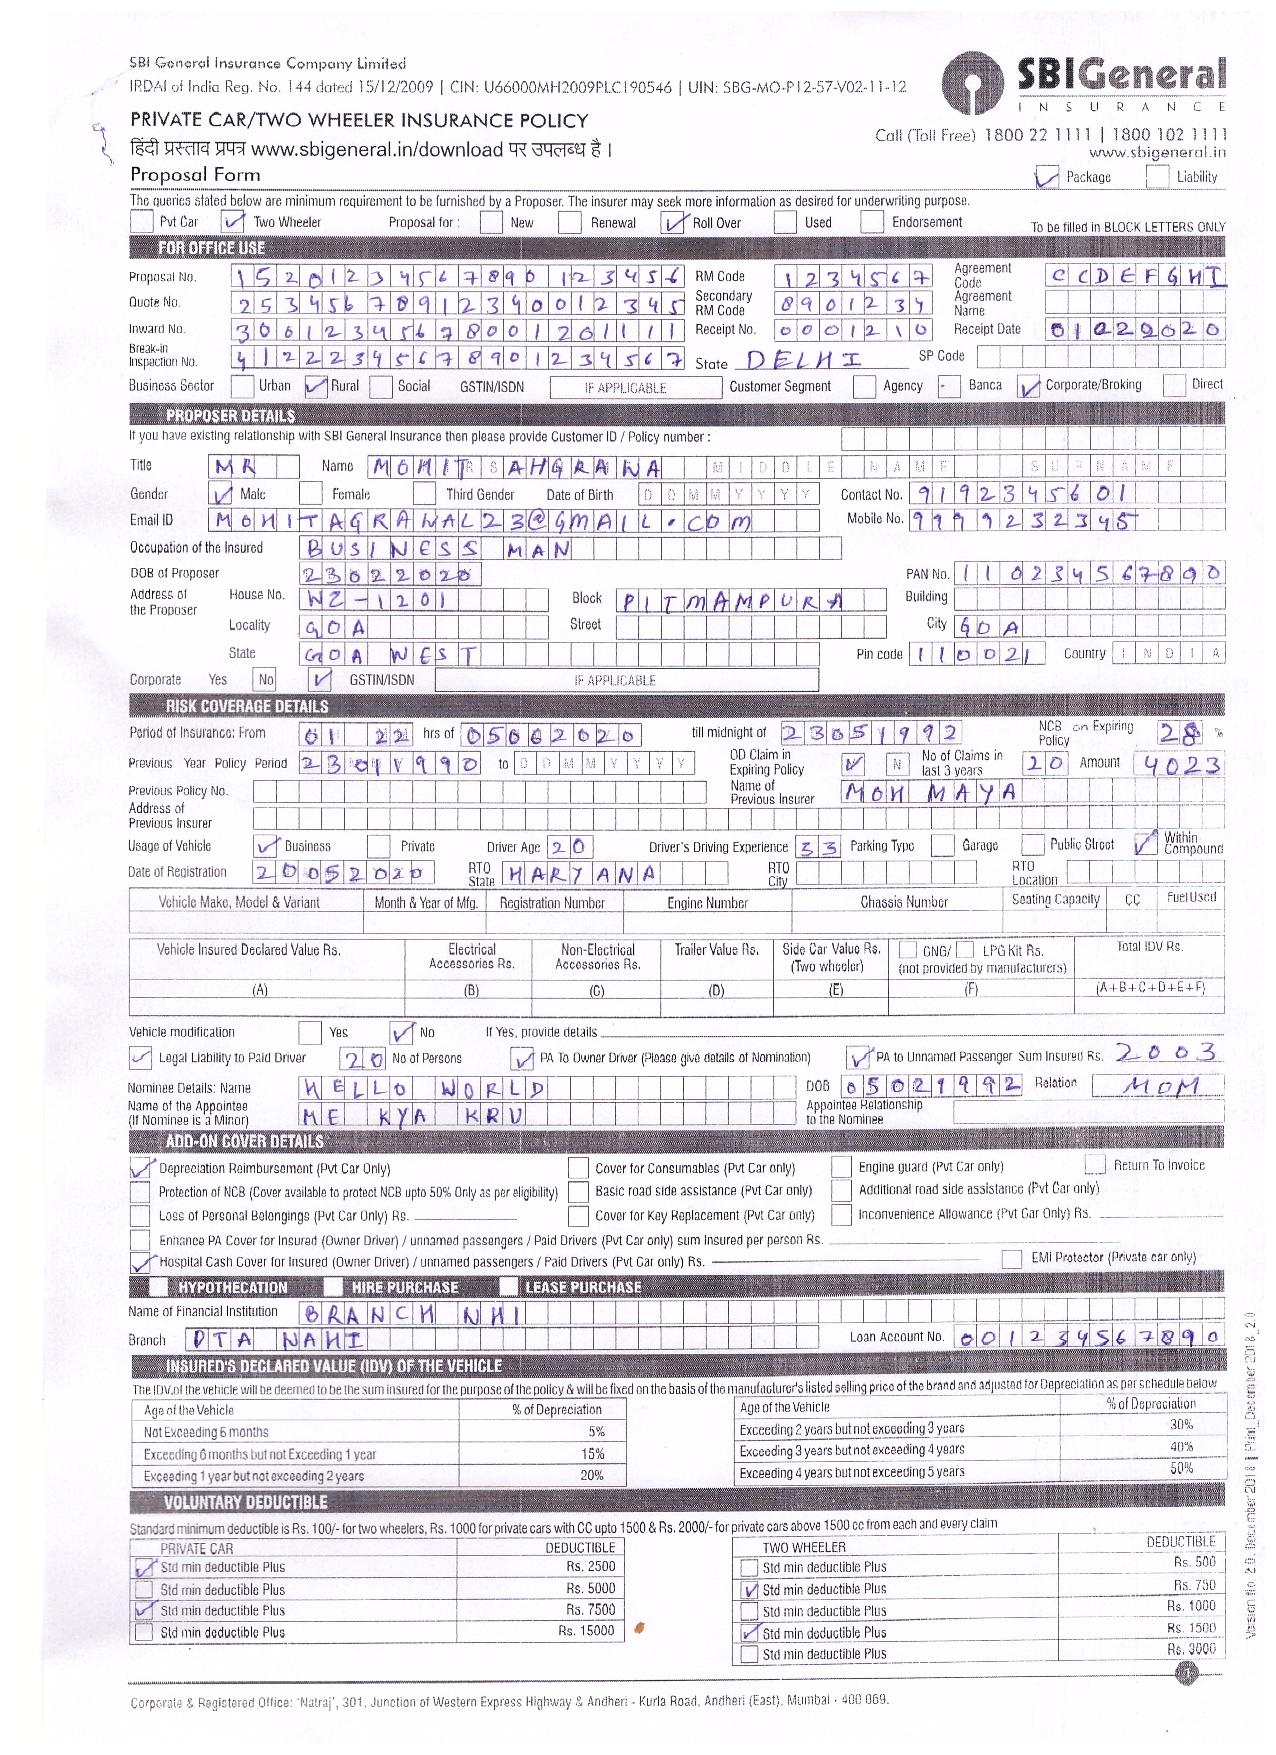 SBI General Insurance Company Limited
IRDAI of India Reg. No. 144 dated 15/12/2009 | CIN: U66000MH2009PLC190546 | UIN: SBG-MO-P12-57-V02-11-12
SBIGeneral
INSURANCE
PRIVATE CAR/TWO WHEELER INSURANCE POLICY
Call (Toll Free) 1800 22 1111 | 1800 102 1111
हिंदी प्रस्ताव प्रपत्र www.sbigeneral.in/download पर उपलब्ध है।
www.sbigeneral.in
Proposal Form Package Liability
The queries stated below are minimum requirement to be furnished by a Proposer. The insurer may seek more information as desired for underwriting purpose.
Pvt Car Two Wheeler Proposal for : New Renewal Roll Over Used Endorsement To be filled in BLOCK LETTERS ONLY
FOR OFFICE USE
Proposal No. 15201234567890123456 RM Code 1234567 Agreement Code CCDEFGHI
Quote No. 25345678912340012345 Secondary RM Code 8901234 Agreement Name
Inward No. 30612345678001201111 Receipt No. 0001210 Receipt Date 01022020
Break-in Inspection No. 41222345678901234567 State DELHI SP Code
Business Sector Urban Rural Social GSTIN/ISDN IF APPLICABLE Customer Segment Agency Banca Corporate/Broking Direct
PROPOSER DETAILS
If you have existing relationship with SBI General Insurance then please provide Customer ID / Policy number :
Title MR Name MOHIT SAHGRAWA MIDDLE NAME SURNAME
Gender Male Female Third Gender Date of Birth DDMMYYYY Contact No. 9192345601
Email ID MOHITAGRAWAL23@GMAIL.COM Mobile No. 9999232345
Occupation of the Insured BUSINESS MAN
DOB of Proposer 23022020 PAN No. 110234567890
Address of the Proposer House No. WZ-1201 Block PITMAMPURA Building
Locality GOA Street City GOA
State GOA WEST Pin code 110021 Country INDIA
Corporate Yes No GSTIN/ISDN IF APPLICABLE
RISK COVERAGE DETAILS
Period of Insurance: From 01 22 hrs of 05062020 till midnight of 23051992 NCB on Expiring Policy 28 %
Previous Year Policy Period 23011990 to DDMMYYYY OD Claim in Expiring Policy Y N No of Claims in last 3 years 20 Amount 4023
Previous Policy No. Name of Previous Insurer MOH MAYA
Address of Previous Insurer
Usage of Vehicle Business Private Driver Age 20 Driver's Driving Experience 33 Parking Type Garage Public Street Within Compound
Date of Registration 20052020 RTO State HARYANA RTO City RTO Location
Vehicle Make, Model & Variant Month & Year of Mfg. Registration Number Engine Number Chassis Number Seating Capacity CC Fuel Used
Vehicle Insured Declared Value Rs. Electrical Accessories Rs. Non-Electrical Accessories Rs. Trailer Value Rs. Side Car Value Rs. (Two wheeler) CNG/ LPG Kit Rs. (not provided by manufacturers) Total IDV Rs.
(A) (B) (C) (D) (E) (F) (A+B+C+D+E+F)
Vehicle modification Yes No If Yes, provide details
Legal Liability to Paid Driver 20 No of Persons PA To Owner Driver (Please give details of Nomination) PA to Unnamed Passenger Sum Insured Rs. 2003
Nominee Details: Name HELLO WORLD DOB 05021992 Relation MOM
Name of the Appointee (If Nominee is a Minor) ME KYA KRU Appointee Relationship to the Nominee
ADD-ON COVER DETAILS
Depreciation Reimbursement (Pvt Car Only) Cover for Consumables (Pvt Car only) Engine guard (Pvt Car only) Return To Invoice
Protection of NCB (Cover available to protect NCB upto 50% Only as per eligibility) Basic road side assistance (Pvt Car only) Additional road side assistance (Pvt Car only)
Loss of Personal Belongings (Pvt Car Only) Rs. Cover for Key Replacement (Pvt Car only) Inconvenience Allowance (Pvt Car Only) Rs.
Enhance PA Cover for Insured (Owner Driver) / unnamed passengers / Paid Drivers (Pvt Car only) sum Insured per person Rs.
Hospital Cash Cover for Insured (Owner Driver) / unnamed passengers / Paid Drivers (Pvt Car only) Rs. EMI Protector (Private car only)
HYPOTHECATION HIRE PURCHASE LEASE PURCHASE
Name of Financial Institution BRANCH NHI
Branch PTA NAHI Loan Account No. 001234567890
INSURED'S DECLARED VALUE (IDV) OF THE VEHICLE
The IDV of the vehicle will be deemed to be the sum insured for the purpose of the policy & will be fixed on the basis of the manufacturer's listed selling price of the brand and adjusted for Depreciation as per schedule below
Age of the Vehicle % of Depreciation Age of the Vehicle % of Depreciation
Not Exceeding 6 months 5% Exceeding 2 years but not exceeding 3 years 30%
Exceeding 6 months but not Exceeding 1 year 15% Exceeding 3 years but not exceeding 4 years 40%
Exceeding 1 year but not exceeding 2 years 20% Exceeding 4 years but not exceeding 5 years 50%
VOLUNTARY DEDUCTIBLE
Standard minimum deductible is Rs. 100/- for two wheelers, Rs. 1000 for private cars with CC upto 1500 & Rs. 2000/- for private cars above 1500 cc from each and every claim
PRIVATE CAR DEDUCTIBLE TWO WHEELER DEDUCTIBLE
Std min deductible Plus Rs. 2500 Std min deductible Plus Rs. 500
Std min deductible Plus Rs. 5000 Std min deductible Plus Rs. 750
Std min deductible Plus Rs. 7500 Std min deductible Plus Rs. 1000
Std min deductible Plus Rs. 15000 Std min deductible Plus Rs. 1500
Std min deductible Plus Rs. 3000
1
Corporate & Registered Office: 'Natraj', 301, Junction of Western Express Highway & Andheri - Kurla Road, Andheri (East), Mumbai - 400 069.
Version No. 2.0 December 2018 | Print, December 2018, 2.0